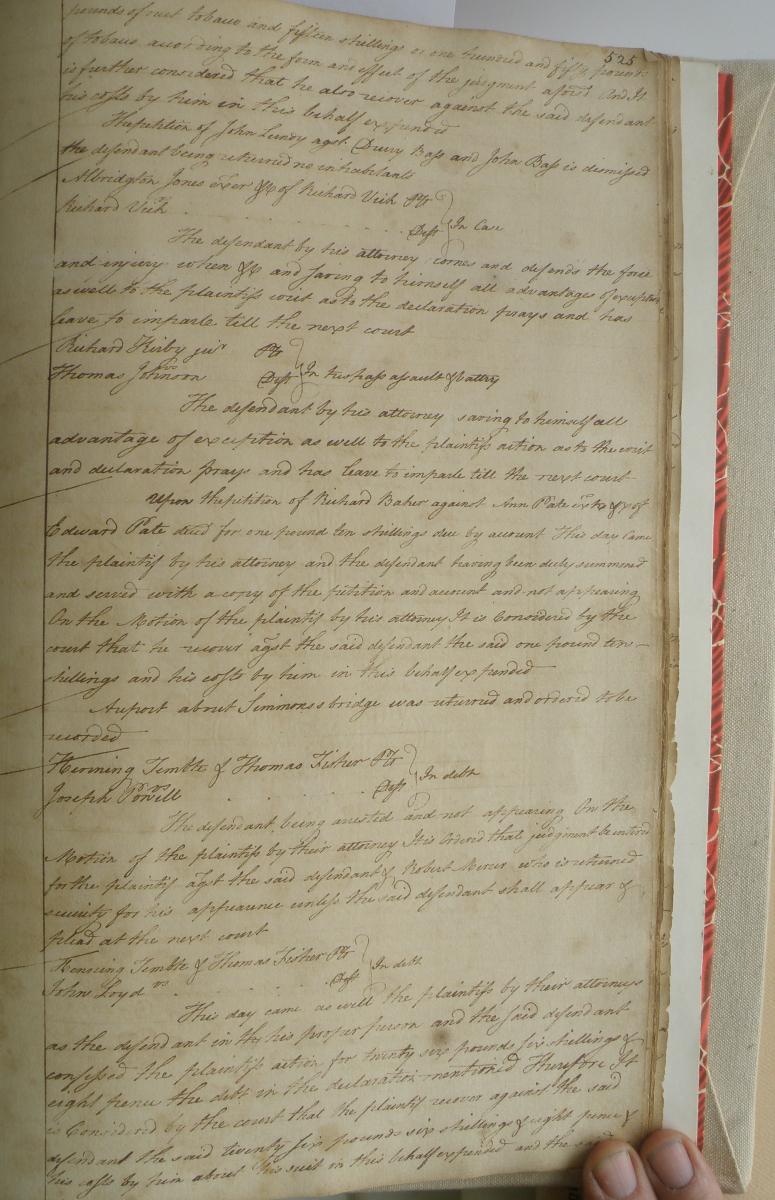 525
pounds of nett tobacco and fifteen shillings or one hundred and fifty pounds
of tobacco according to the form and effect of the judgment afores.d And It
is further considered that he also recover against the said defendant
his costs by him in this behalf expended
The petition of John Lundy agst. Drury Bass and John Bass is dismissed
the defendant being returned no inhabitants
Albridgton Jones exer &c of Richard Vick Ptf
In Case
Richard Vick Deft
The defendant by his attorney comes and defends the force
and injury when &c and saving to himself all advantages of exception
as well to the plaintifs writ as to the declaration prays and has
leave to imparle till the next court
Richard Kirby jur Ptf
vs In trespass assault & battery
Thomas Johnson Deft
The defendant by his attorney saving to himself all
advantage of exception as well to the plaintifs action as to the writ
and declaration prays and has leave to imparle till the next court
Upon the petition of Richard Baker against Ann Pate extx &c of
Edward Pate decd for one pound ten shillings due by account This day Came
the plaintif by his attorney and the defendant having been duly summoned
and served with a copy of the petition and account and not appearing
On the Motion of the plaintif by his attorney It is Considered by the
court that he recover agst the said defendant the said one pound ten
shillings and his costs by him in this behalf expended
A report about Simmons's bridge was returned and ordered to be
recorded
Herning Temble & Thomas Fisher Ptfs
vs In debt
Joseph Powell Deft
The defendant being arrested and not appearing On the
Motion of the plaintifs by their attorney It is Ordered that judgment be entred
for the plaintifs agst the said defendant & Robert Mercer who is returned
security for his appearance unless the said defendant shall appear &
plead at the next court
Temble & Thomas Fisher Ptfs
vs In debt
John Loyd Deft
This day came as well the plaintifs by their attorneys
as the defendant in his proper person and the said defendant
confessed the plaintifs action for twenty six pounds six shillings &
eight pence the debt in the declaration mentioned Therefore It
is Considered by the court that the plaintifs recover against the said
defendant the said twenty six pounds six shillings & eight pence &
his costs by him about his suit in this behalf expended and the said